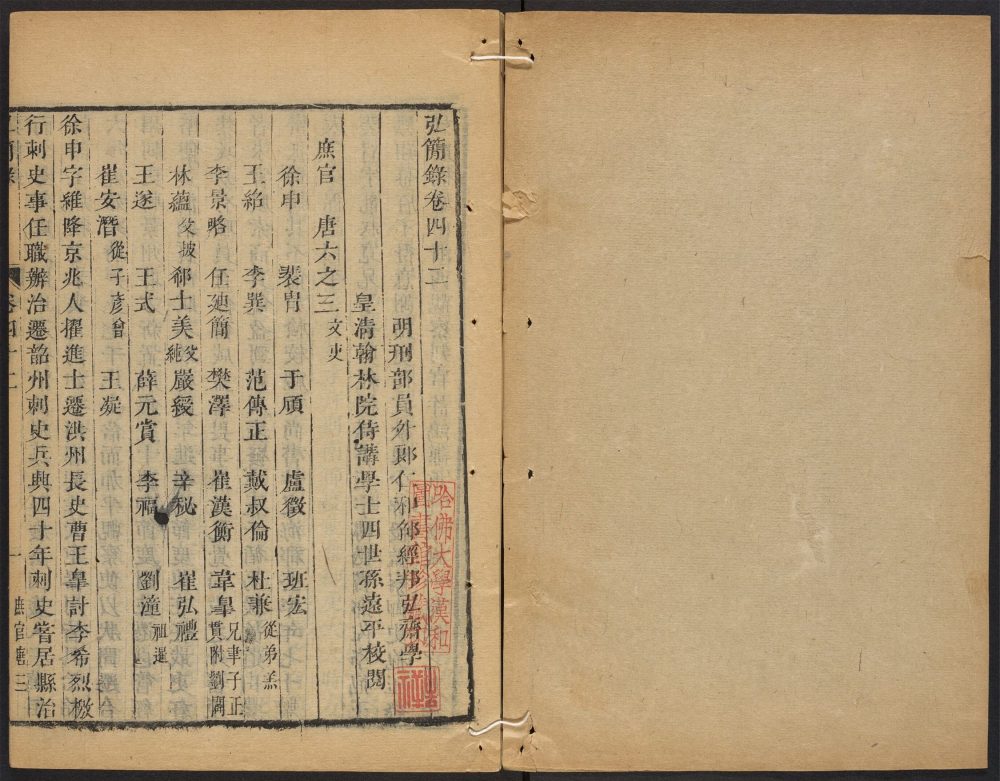 弘簡錄卷四十二
明刑部員外郎仁和邵經邦弘齋學
皇清翰林院侍講學士四世孫遠平校閱
庶官 唐六之三 文吏
徐申 裴冑 于頎 盧徵 班宏
王紹 李巽 范傳正 戴叔倫 杜兼 從弟羔
李景略 任廸簡 樊澤 崔漢衡 韋皐 兄聿子正貫附劉闢
林蘊 父披 郗士美 父純 嚴綬 辛秘 崔弘禮
王遂 王式 薛元賞 李福 劉潼 祖暹
崔安潛 從子彥曾 王凝
徐申字維降京兆人擢進士遷洪州長史曹王皐討李希烈檄
行刺史事任職辦治遷韶州刺史兵興四十年刺史寄居縣治
卷四十二
一
庶官唐三
哈佛大學漢和
圖書館珍藏印